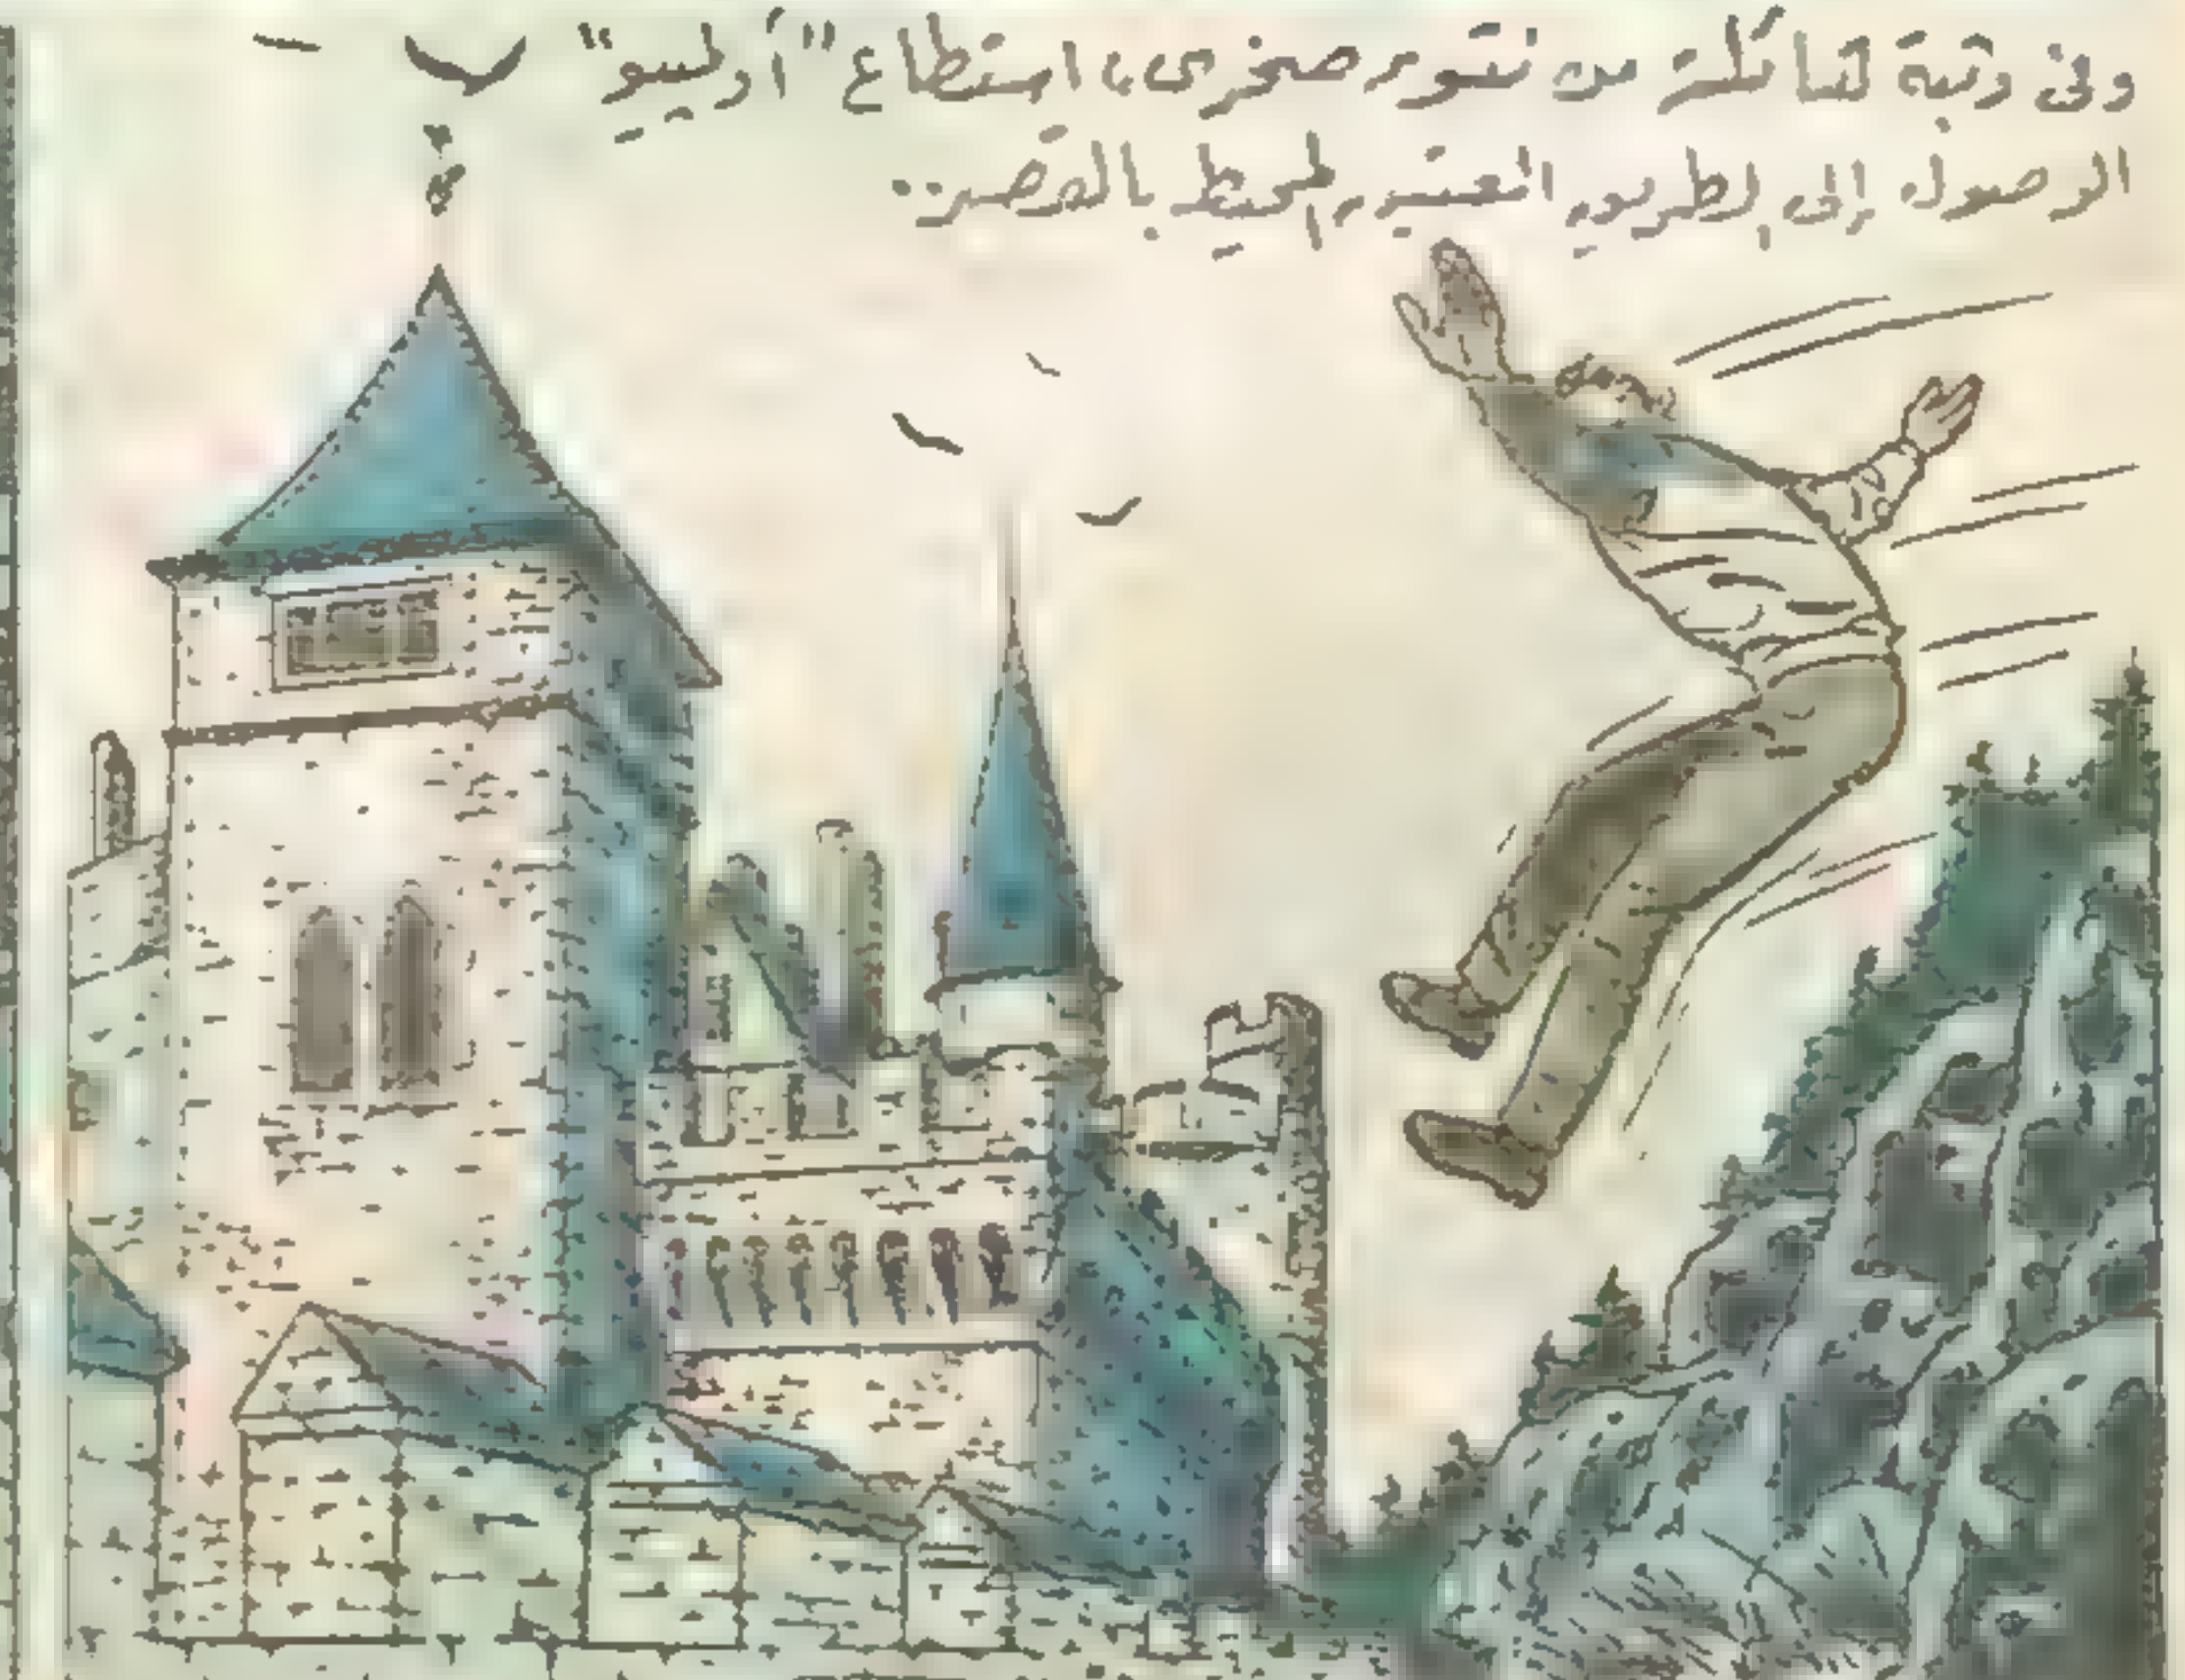 وفى وثبة هائلة من نتوء صخرى، استطاع "أوليو"
الوصول إلى الطريق العتيق المحيط بالقصر..